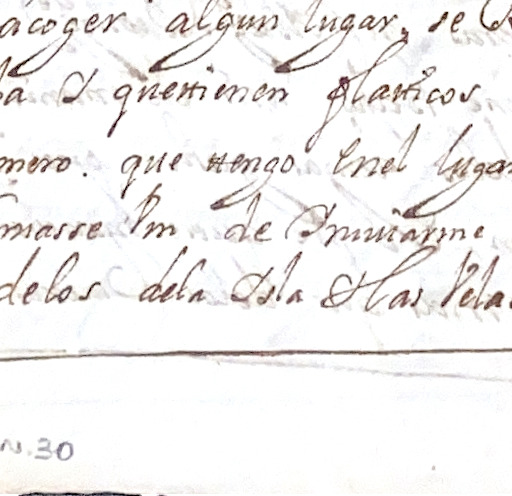 acoger algun lugar, se
ba I quettienen plasticos
mero. que ttengo Enel lugar
masse Vm de Inviarme
delos dela Isla Mas Vela
N.30